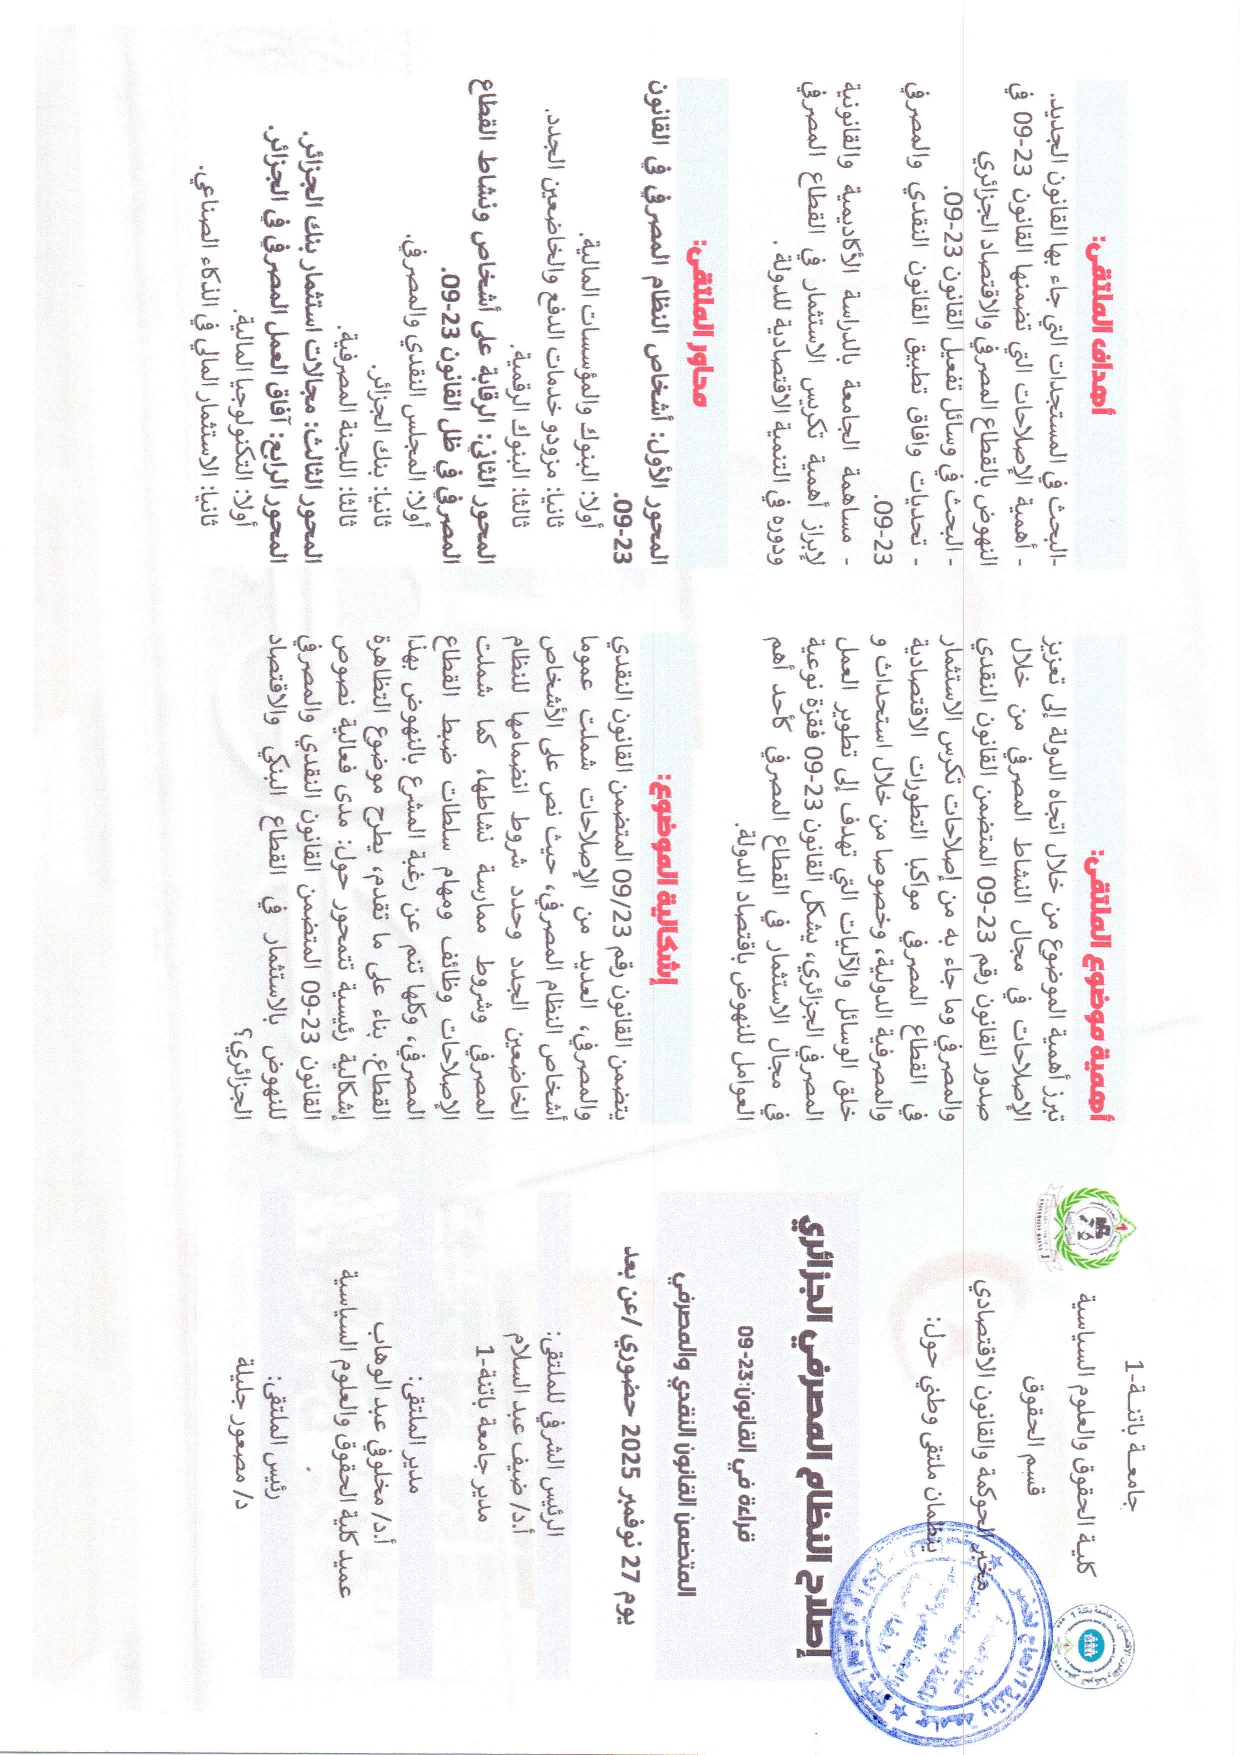 جامعة باتنة-1
كلية الحقوق والعلوم السياسية
قسم الحقوق
مخبر الحوكمة والقانون الاقتصادي
ينظمان ملتقى وطني حول:
إصلاح النظام المصرفي الجزائري
قراءة في القانون:23-09
المتضمن القانون النقدي والمصرفي
يوم 27 نوفمبر 2025 حضوري /عن بعد
الرئيس الشرفي للملتقى:
أ.د/ ضيف عبد السلام
مدير جامعة باتنة-1
مدير الملتقى:
أ.د/ مخلوفي عبد الوهاب
عميد كلية الحقوق والعلوم السياسية
رئيس الملتقى:
د/ مصعور جليلة
أهمية موضوع الملتقى:
تبرز أهمية الموضوع من خلال اتجاه الدولة إلى تعزيز
الإصلاحات في مجال النشاط المصرفي من خلال
صدور القانون رقم 23-09 المتضمن القانون النقدي
والمصرفي وما جاء به من إصلاحات تكرس الاستثمار
في القطاع المصرفي مواكبا التطورات الاقتصادية
والمصرفية الدولية، وخصوصا من خلال استحداث و
خلق الوسائل والآليات التي تهدف إلى تطوير العمل
المصرفي الجزائري، يشكل القانون 23-09 قفزة نوعية
في مجال الاستثمار في القطاع المصرفي كأحد أهم
العوامل للنهوض باقتصاد الدولة.
إشكالية الموضوع:
يتضمن القانون رقم 09/23 المتضمن القانون النقدي
والمصرفي، العديد من الإصلاحات شملت عموما
أشخاص النظام المصرفي، حيث نص على الأشخاص
الخاضعين الجدد وحدد شروط انضمامها للنظام
المصرفي وشروط ممارسة نشاطها، كما شملت
الإصلاحات وظائف ومهام سلطات ضبط القطاع
المصرفي، وكلها تنم عن رغبة المشرع بالنهوض بهذا
القطاع. بناء على ما تقدم، يطرح موضوع التظاهرة
إشكالية رئيسية تتمحور حول: مدى فعالية نصوص
القانون 23-09 المتضمن القانون النقدي والمصرفي
للنهوض بالاستثمار في القطاع البنكي والاقتصاد
الجزائري؟
أهداف الملتقى:
-البحث في المستجدات التي جاء بها القانون الجديد.
- أهمية الإصلاحات التي تضمنها القانون 23-09 في
النهوض بالقطاع المصرفي والاقتصاد الجزائري
- البحث في وسائل تفعيل القانون 23-09.
- تحديات وافاق تطبيق القانون النقدي والمصرفي
23-09.
- مساهمة الجامعة بالدراسة الأكاديمية والقانونية
لإبراز أهمية تكريس الاستثمار في القطاع المصرفي
ودوره في التنمية الاقتصادية للدولة .
محاور الملتقى:
المحور الأول: أشخاص النظام المصرفي في القانون
23-09.
أولا: البنوك والمؤسسات المالية.
ثانيا: مزودو خدمات الدفع والخاضعين الجدد.
ثالثا: البنوك الرقمية.
المحور الثاني: الرقابة على أشخاص ونشاط القطاع
المصرفي في ظل القانون 23-09.
أولا: المجلس النقدي والمصرفي.
ثانيا: بنك الجزائر.
ثالثا: اللجنة المصرفية.
المحور الثالث: مجالات استثمار بنك الجزائر.
المحور الرابع: آفاق العمل المصرفي في الجزائر.
أولا: التكنولوجيا المالية.
ثانيا: الاستثمار المالي في الذكاء الصناعي.